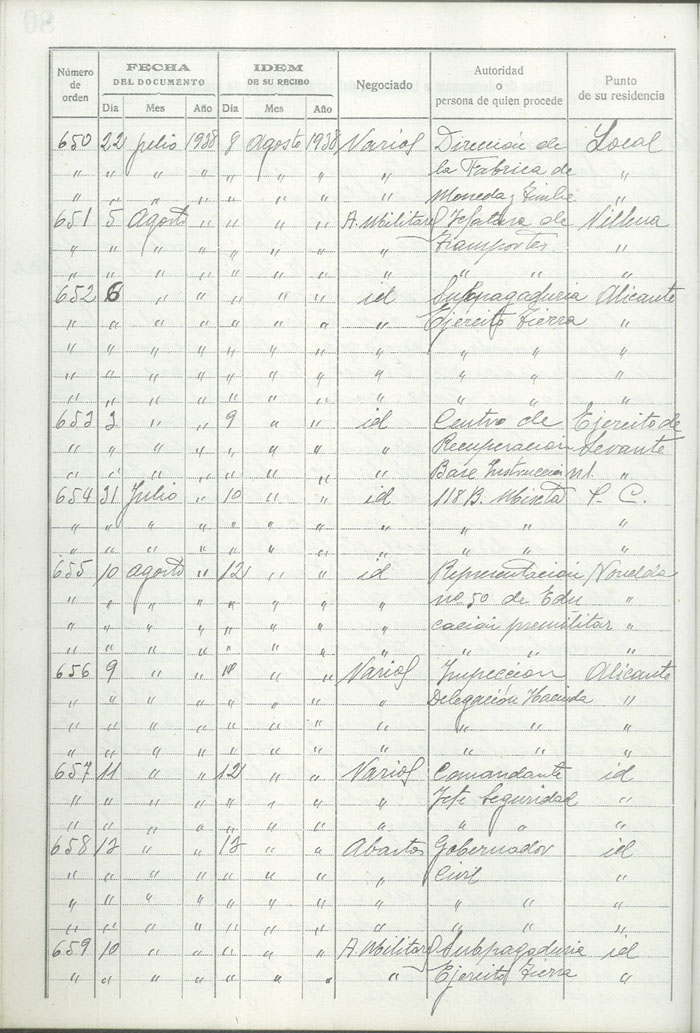 Número de orden FECHA DEL DOCUMENTO IDEM DE SU RECIBO Negociado Autoridad o persona de quien procede Punto de su residencia
Día Mes Año Día Mes Año
650 22 Julio 1938 8 Agosto 1938 Varios Dirección de Local
" " " " " " " " la Fabrica de "
" " " " " " " " Moneda y Timbre "
651 5 Agosto " " " " A. Militares Jefatura de Villena
" " " " " " " " Transportes "
" " " " " " " " " " "
652 6 " " " " " id Subpagaduria Alicante
" " " " " " " " Ejército Tierra "
" " " " " " " " " " "
" " " " " " " " " " "
" " " " " " " " " " "
653 3 " " 9 " " id Centro de Ejercito de
" " " " " " " " Recuperación Levante
" " " " " " " " Base Instrucción nº 1. "
654 31 Julio " 10 " " id 118 B. Mixta P. C.
" " " " " " " " " " "
" " " " " " " " " " "
655 10 agosto " 12 " " id Representación Novelda
" " " " " " " " nº 50 de Edu "
" " " " " " " " cación premilitar "
" " " " " " " " " " "
656 9 " " " " Varios Inspección Alicante
" " " " " " " " Delegación Hacienda "
" " " " " " " " " " "
" " " " " " " " " " "
657 11 " " 12 " " Varios Comandante id
" " " " " " " " Jefe Seguridad "
" " " " " " " " " " "
658 12 " " 12 " " Abastos Gobernador id
" " " " " " " " Civil "
" " " " " " " " " " "
" " " " " " " " " " "
659 10 " " " " " A. Militares Subpagaduria id
" " " " " " " " Ejercito Tierra "